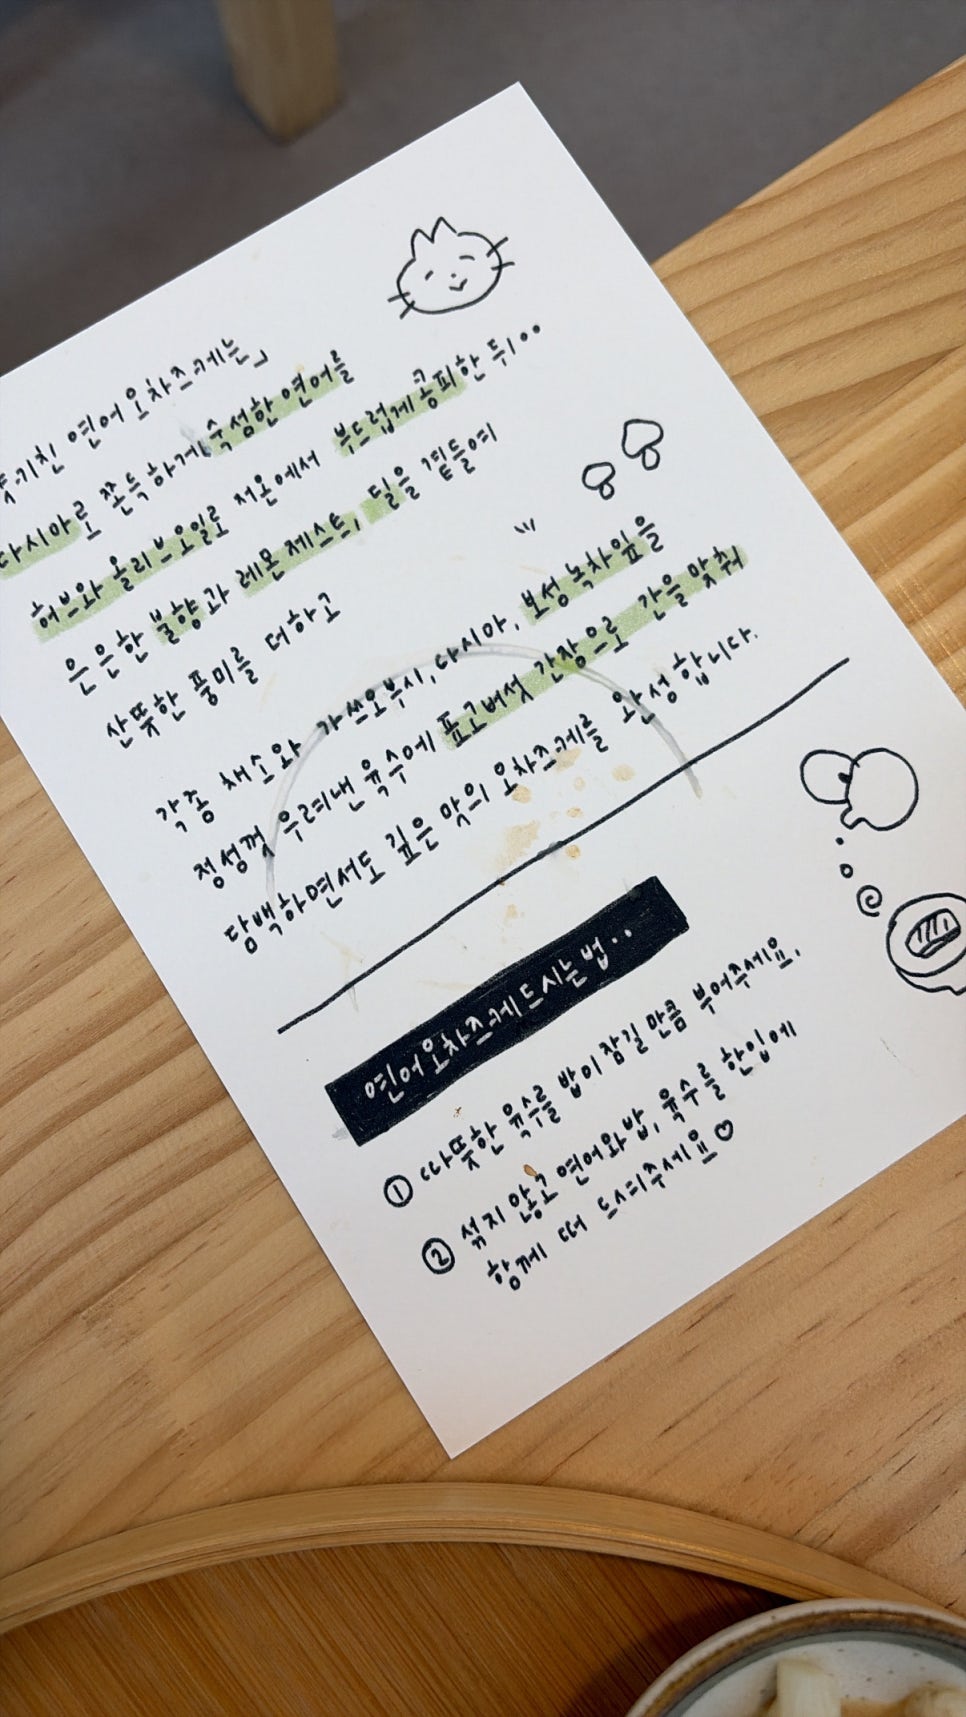 연어 오차즈케는」
다시마로 쫀득하게 숙성한 연어를
허브와 올리브오일로 저온에서 부드럽게 콩피한 뒤..
은은한 불향과 레몬 제스트, 딜을 곁들여
산뜻한 풍미를 더하고
각종 채소와 가쓰오부시, 다시마, 보성 녹차잎을
정성껏 우려낸 육수에 표고버섯 간장으로 간을 맞춰
담백하면서도 깊은 맛의 오차즈케를 완성합니다.
연어 오차즈케 드시는 법..
① 따뜻한 육수를 밥이 잠길 만큼 부어주세요.
② 섞지 않고 연어와 밥, 육수를 한입에
함께 떠 드셔주세요♡